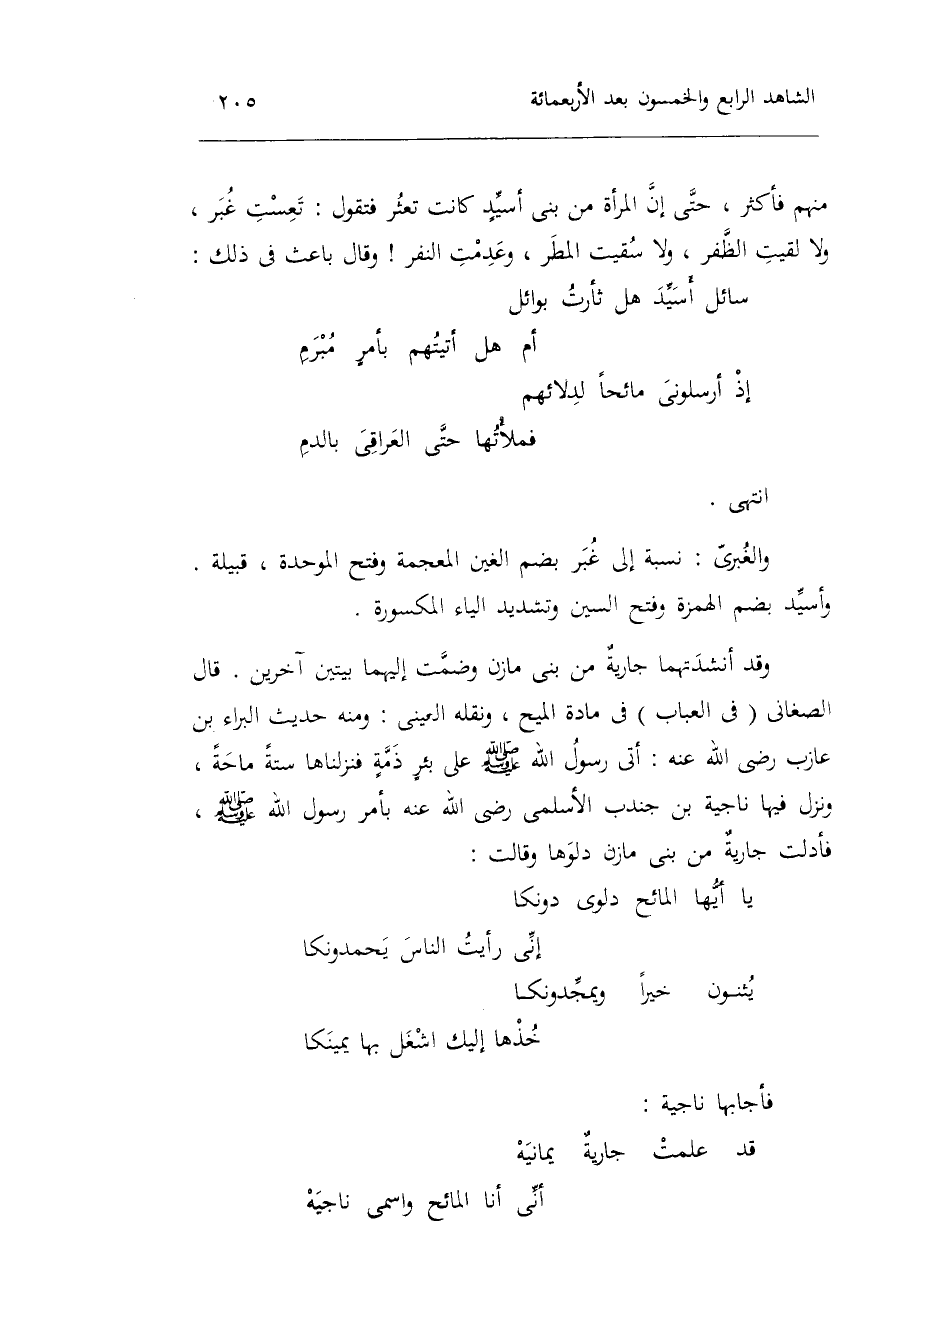 الشاهد الرابع والخمسون بعد الأربعمائة ٢٠٥
منهم فأكثر ، حتَّى إنَّ المرأة من بنى أسيِّدٍ كانت تعثُر فتقول : تَعِسْتِ غُبَر ،
ولا لقيتِ الظَّفر ، ولا سُقيت المطَر ، وعَدِمْتِ النفر ! وقال باعث فى ذلك :
سائل أُسَيِّدَ هل ثأرتُ بوائل
أم هل أتيتُهم بأمرٍ مُبْرَمِ
إذْ أرسلونىَ مائحاً لدِلائهم
فملأْتُها حتَّى العَراقِىَ بالدمِ
انتهى .
والغُبرىّ : نسبة إلى غُبَر بضم الغين المعجمة وفتح الموحدة ، قبيلة .
وأسيِّد بضم الهمزة وفتح السين وتشديد الياء المكسورة .
وقد أنشدَتهما جاريةٌ من بنى مازن وضمَّت إليهما بيتين آخرين . قال
الصغانى ( فى العباب ) فى مادة الميح ، ونقله العينى : ومنه حديث البراء بن
عازب رضى الله عنه : أتى رسولُ الله ﷺ على بئرٍ ذَمَّةٍ فنزلناها ستةً ماحَةً ،
ونزل فيها ناجية بن جندب الأسلمى رضى الله عنه بأمر رسول الله ﷺ ،
فأدلت جاريةٌ من بنى مازن دلوَها وقالت :
يا أيُّها المائح دلوى دونكا
إنِّى رأيتُ الناسَ يَحمدونكا
يُثنـون خيراً ويمجِّدونكـا
خُذْها إليك اشْغَل بها يمينَكا
فأجابها ناجية :
قد علمتْ جاريةٌ يمانيَهْ
أنِّى أنا المائح واسمى ناجيَهْ